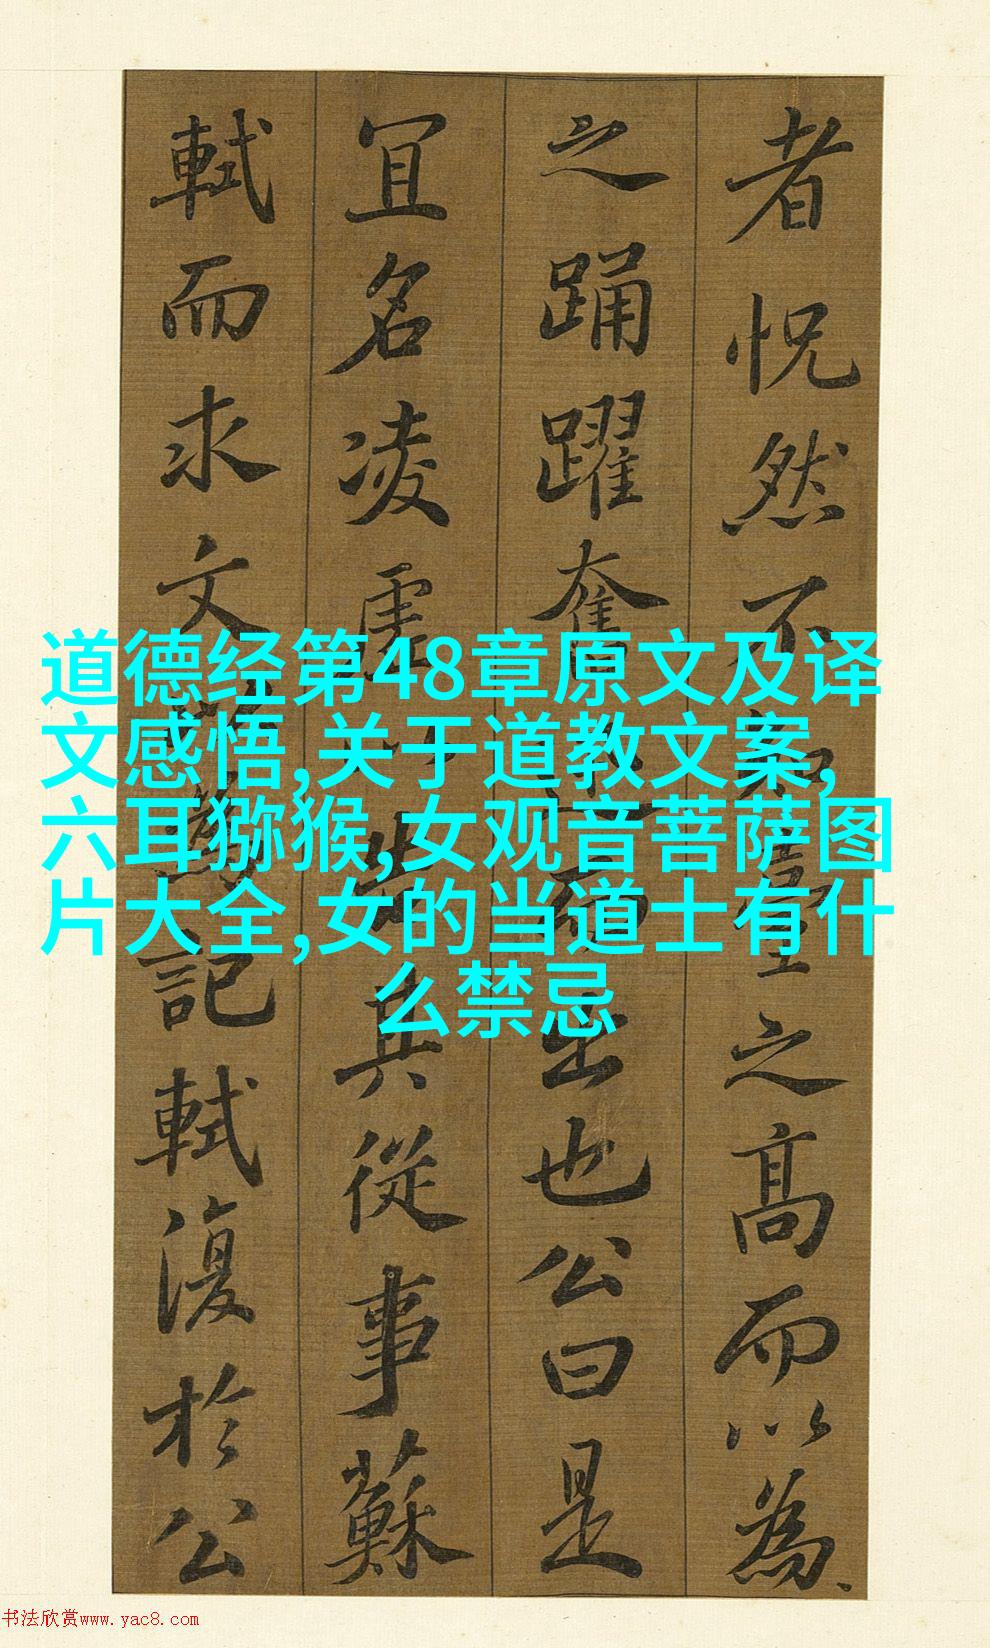 者怳然不知臺之髙而以為
之踊躍奮迅而出也公曰是
冝名凌虛以告其從事蘇
軾而求文以為記軾復於公
道德经第48章原文及译
文感悟,关于道教文案,
六耳猕猴,女观音菩萨图
片大全,女的当道士有什
么禁忌
书法欣赏www.yac8.com